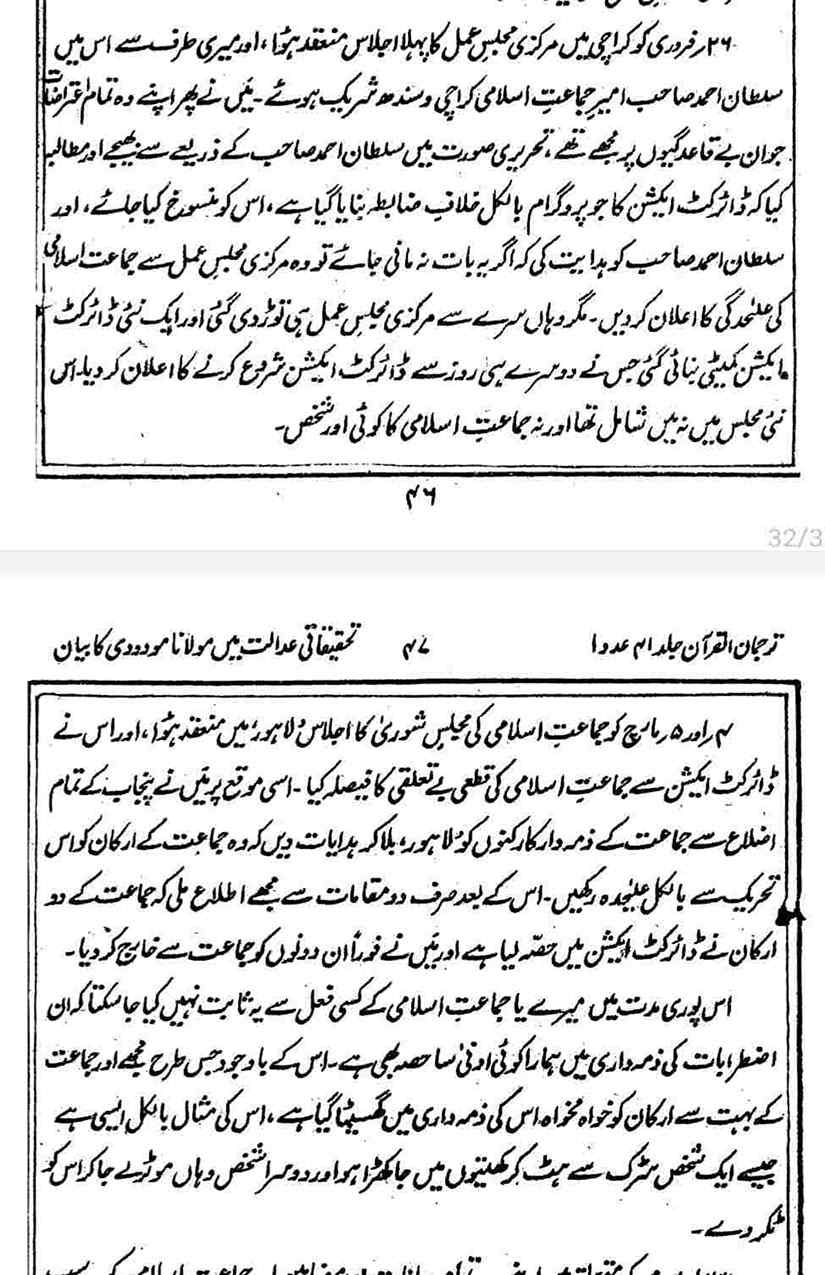 ۲۶ر فروری کو کراچی میں مرکزی مجلسِ عمل کا پہلا اجلاس منعقد ہوُا، اور میری طرف سے اس میں
سلطان احمد صاحب امیر جماعتِ اسلامی کراچی و سندھ شریک ہوئے۔ میَں نے پھر اپنے وہ تمام اعتراضات
جو ان بے قاعدگیوں پر مجھے تھے، تحریری صورت میں سلطان احمد صاحب کے ذریعے سے بھیجے اور مطالبہ
کیا کہ ڈائرکٹ ایکشن کا جو پروگرام بالکل خلافِ ضابطہ بنایا گیا ہے، اس کو منسوخ کیا جائے، اور
سلطان احمد صاحب کو ہدایت کی کہ اگر یہ بات نہ مانی جائے تو وہ مرکزی مجلسِ عمل سے جماعت اسلامی
کی علٰیحدگی کا اعلان کر دیں۔ مگر وہاں سرے سے مرکزی مجلسِ عمل ہی توڑ دی گئی اور ایک نئی ڈائرکٹ
ایکشن کمیٹی بنائی گئی جس نے دوسرے ہی روز سے ڈائرکٹ ایکشن شروع کرنے کا اعلان کر دیا۔ اس
نئی مجلس میں نہ میں شامل تھا اور نہ جماعتِ اسلامی کا کوئی اور شخص۔
۴۶
32/3
ترجمان القرآن جلد ۴۱ عدد ۱ ۴۷ تحقیقاتی عدالت میں مولانا مودودی کا بیان
۴ر اور ۵ر مارچ کو جماعتِ اسلامی کی مجلسِ شوریٰ کا اجلاس لاہور میں منعقد ہوُا، اور اس نے
ڈائرکٹ ایکشن سے جماعتِ اسلامی کی قطعی بے تعلقی کا فیصلہ کیا۔ اسی موقع پر میَں نے پنجاب کے تمام
اضلاع سے جماعت کے ذمہ دار کارکنوں کو لاہور، بلا کر ہدایات دیں کہ وہ جماعت کے ارکان کو اس
تحریک سے بالکل علیٰحدہ رکھیں۔ اس کے بعد صرف دو مقامات سے مجھے اطلاع ملی کہ جماعت کے دو
ارکان نے ڈائرکٹ ایکشن میں حصّہ لیا ہے اور میَں نے فوراً ان دونوں کو جماعت سے خارج کر دیا۔
اس پوری مدت میں میرے یا جماعتِ اسلامی کے کسی فعل سے یہ ثابت نہیں کیا جا سکتا کہ ان
اضطرابات کی ذمہ داری میں ہمارا کوئی ادنیٰ سا حصہ بھی ہے۔ اس کے باوجود جس طرح مجھے اور جماعت
کے بہت سے ارکان کو خواہ مخواہ اس کی ذمہ داری میں گھسیٹا گیا ہے، اس کی مثال بالکل ایسی ہے
جیسے ایک شخص سڑک سے ہٹ کر کھیتوں میں جا کھڑا ہو اور دوسرا شخص وہاں موٹر لے جا کر اس کو
ٹکر دے۔